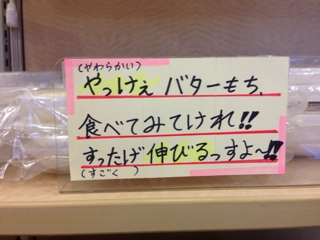 (やわらかい)
やっけぇ バターもち、
食べてみてけれ!!
すったげ 伸びるっすよ〜!!
(すごく)